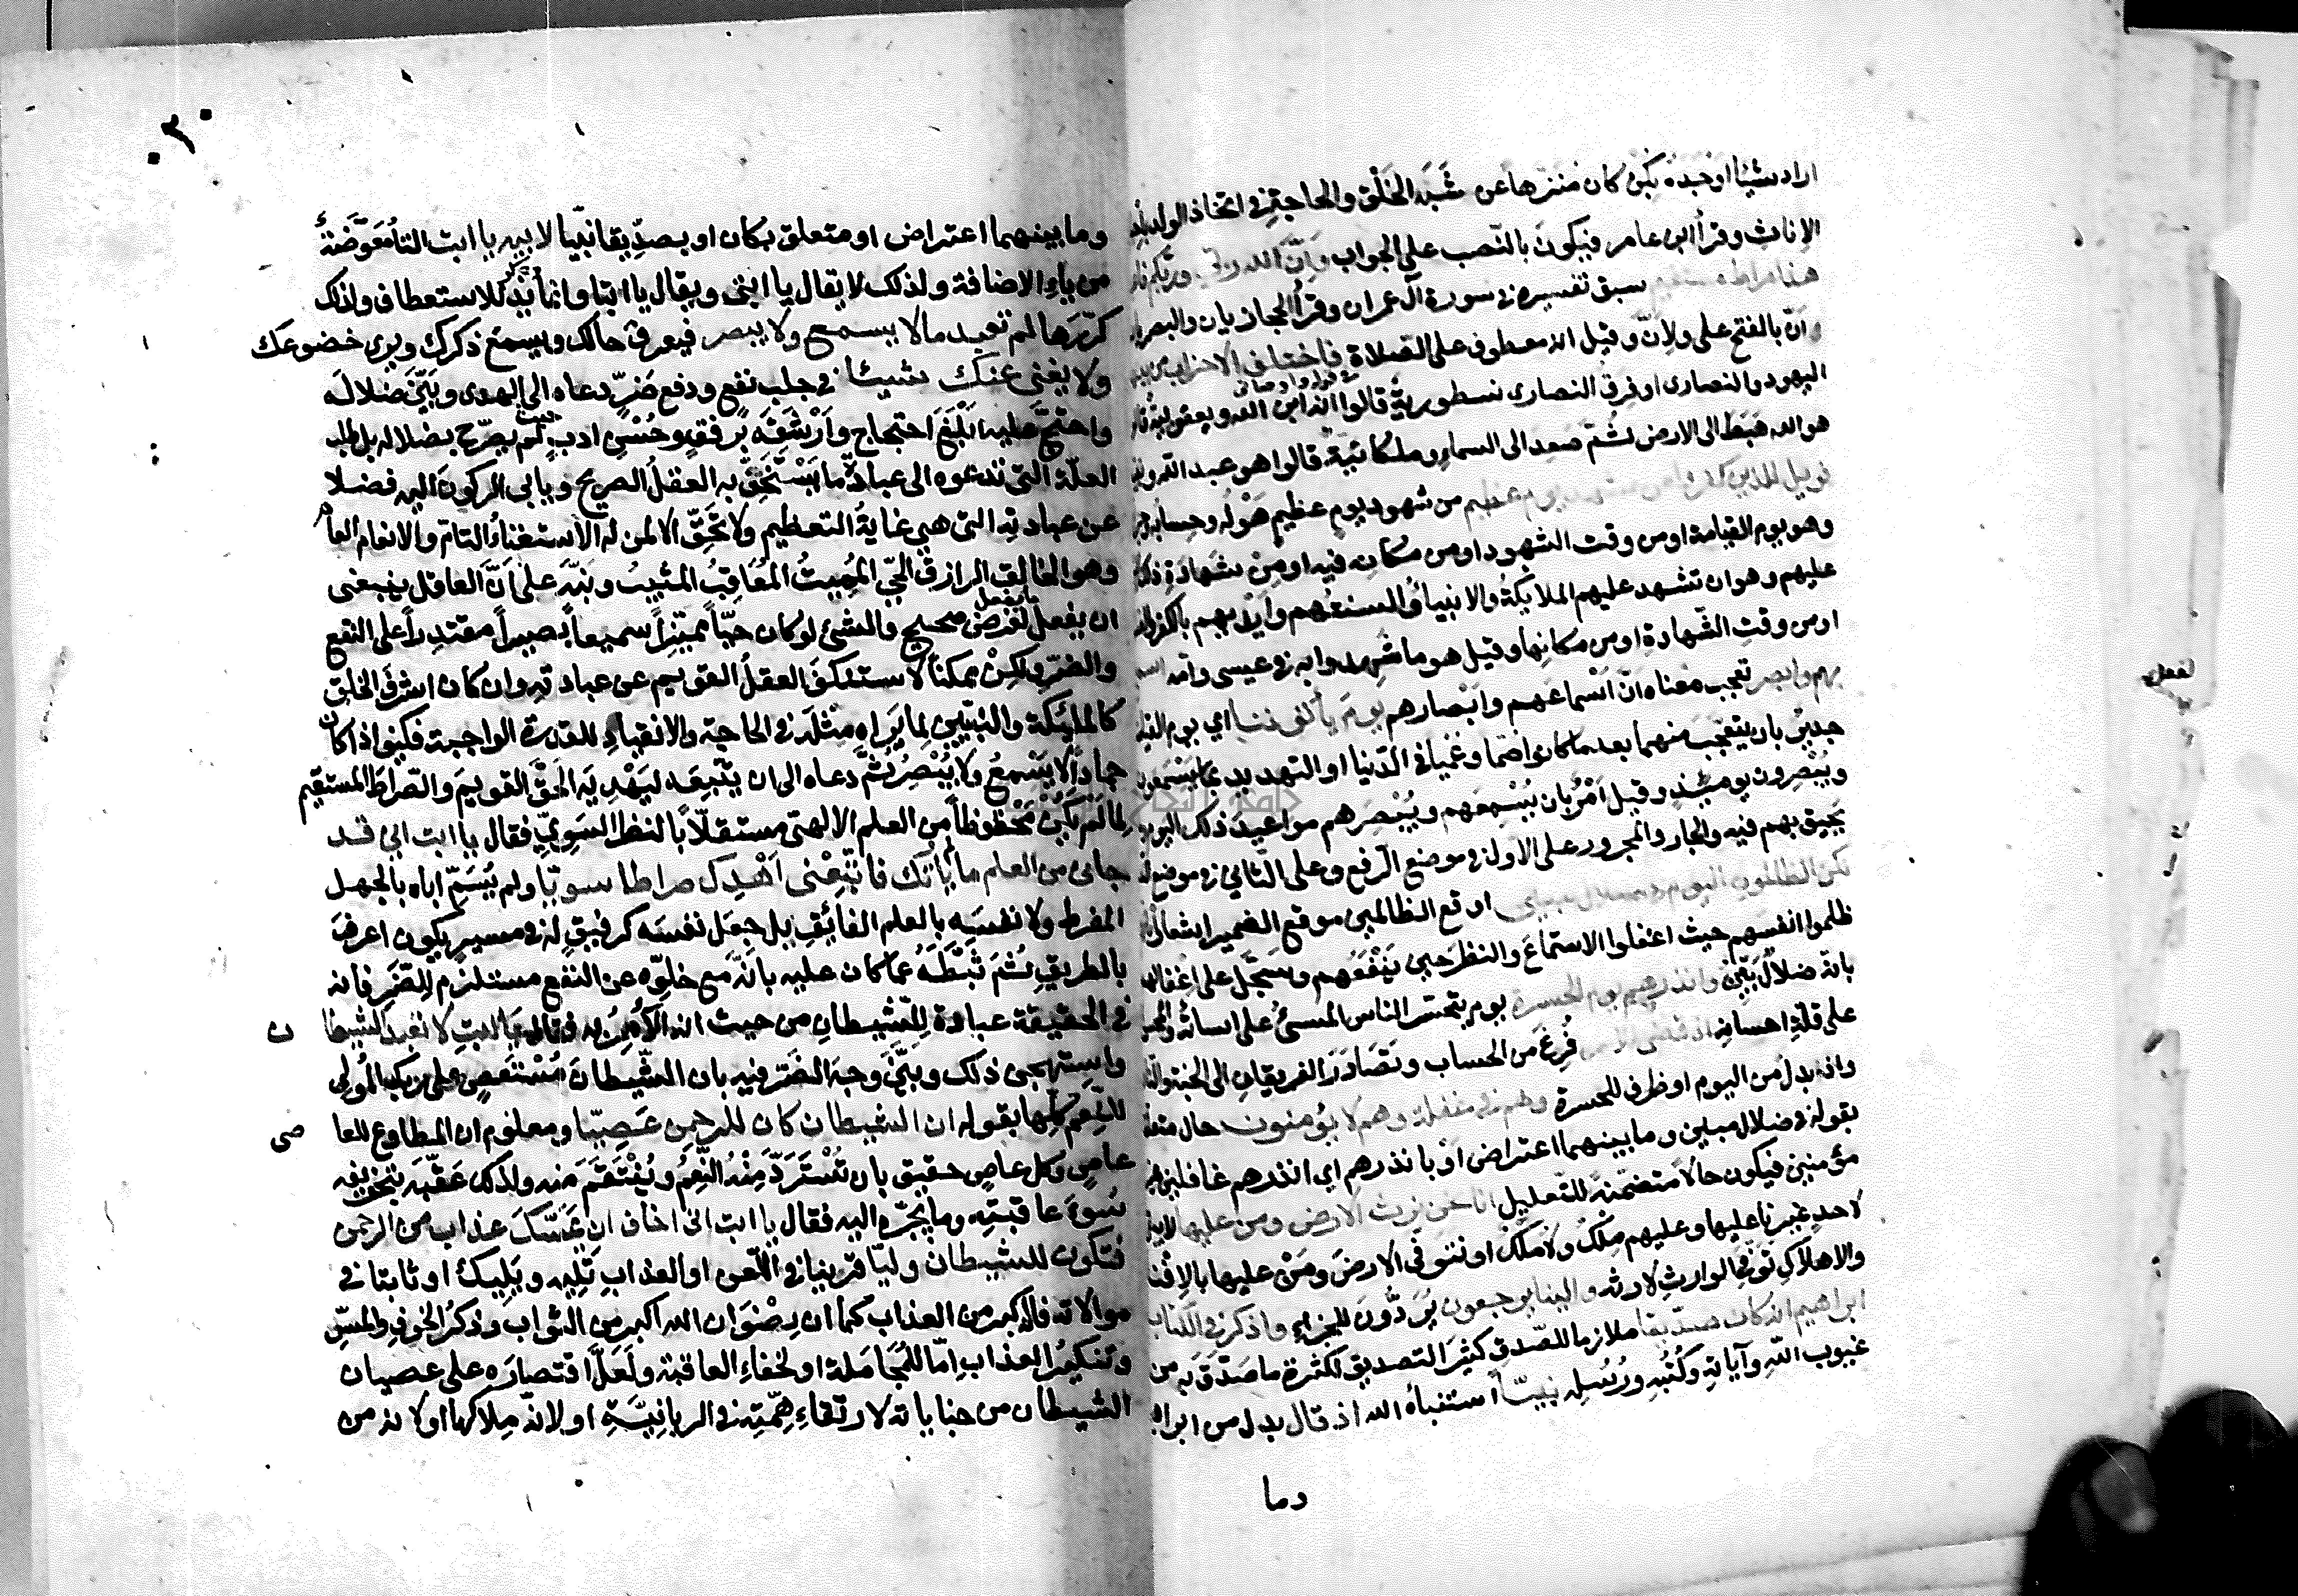 اراد شيئا اوجده بكن كان منزها عن شبه الخلق والحاجة في اتخاذ الولد
الاناث وقرأ ابن عامر فيكون بالنصب على الجواب وان الله ربي وربكم
هذا صراط مستقيم سبق تفسيره في سورة آل عمران وقرأ الحجازيان والبصريان
وان بالفتح على ولان وقيل انه معطوف على الصلاة فاختلف الاحزاب من
اليهود والنصارى او فرق النصارى نسطورية قالوا انه ابن الله ويعقوبية
هو الله هبط الى الارض ثم صعد الى السماء وملكائية قالوا هو عبد الله
فويل للذين كفروا من مشهد يوم عظيم من شهود يوم عظيم هوله وحسابه
وهو يوم القيامة او من وقت الشهود او من مكانه فيه او من شهادة ذلك
عليهم وهو ان تشهد عليهم الملايكة والانبياء والسنتهم وايديهم بالكفر
او من وقت الشهادة او من مكانها وقيل هو ما شهدوا به في عيسى وامه اسمع
بهم وابصر تعجب معناه ان اسماعهم وابصارهم يوم يأتوننا اي يوم
جدير بان يتعجب منهما بعد ما كانوا صما وعميا في الدنيا او التهديد بما يسمعون
ويبصرون يومئذ وقيل امر بان يسمعهم ويبصرهم مواعيد ذلك اليوم
يحيق بهم فيه والجار والمجرور على الاول في موضع الرفع وعلى الثاني في موضع
لكن الظالمون اليوم في ضلال مبين اوقع الظالمين موقع الضمير اشعارا
ظلموا انفسهم حيث اغفلوا الاستماع والنظر حين ينفعهم وسجل على اغفالهم
بانه ضلال بين وانذرهم يوم الحسرة يوم يتحسر الناس المسئ على اساته
على قلة احسانه اذ قضى الامر فرغ من الحساب وتصادر الفريقان الى الجنة
واذ بدل من اليوم او ظرف للحسرة وهم في غفلة وهم لا يؤمنون حال
بقوله في ضلال مبين وما بينهما اعتراض او بانذرهم اي انذرهم غافلين
مؤمنين فيكون حالا متضمنة للتعليل انا نحن نرث الارض ومن عليها لا يبقى
لاحد غيرنا عليها وعليهم ملك ولا ملك او نتوفى الارض ومن عليها بالافناء
والاهلاك توفي الوارث لارثه والينا يرجعون يردون للجزاء واذكر في الكتاب
ابراهيم انه كان صديقا ملازما للصدق كثير التصديق لكثرة ما صدق به من
غيوب الله وآياته وكتبه ورسله نبيا استنبأه الله اذ قال بدل من
وما
لفعل
٣٠
وما بينهما اعتراض او متعلق بكان او بصديقا نبيا لابيه يا ابت التا معوضة
من ياء الاضافة ولذلك لا يقال يا ابتي ويقال يا ابتا وانما يذكر للاستعطاف ولذلك
كررها لم تعبد ما لا يسمع ولا يبصر فيعرف حالك ويسمع ذكرك ويرى خضوعك
ولا يغني عنك شيئا في جلب نفع ودفع ضر دعاه الى الهدى وبين ضلاله
واحتج عليه ابلغ احتجاج وارشقه برفق وحسن ادب حيث لم يصرح بضلاله بل طلب
العلة التي تدعوه الى عبادة ما يستخف به العقل الصريح ويابى الركون اليه فضلا
عن عبادته التي هي غاية التعظيم ولا تحق الا لمن له الاستغناء التام والانعام العام
وهو الخالق الرازق المحي المميت المعاقب المثيب ونبه على ان العاقل ينبغي
ان يفعل ما يفعل لغرض صحيح والشئ لو كان حيا مميزا سميعا بصيرا مقتدرا على النفع
والضر ولكن ممكنا لاستنكف العقل القويم عن عبادته وان كان اشرف الخلق
كالملئكة والنبيين لما يراه مثله في الحاجة والانقياد للقدرة الواجبة فكيف اذا كان
جمادا لا يسمع ولا يبصر ثم دعاه الى ان يتبعه ليهديه الحق القويم والصراط المستقيم
لما لم يكن محظوظا من العلم الالهي مستقلا بالنظر السوي فقال يا ابت اني قد
جاني من العلم ما لم ياتك فاتبعني اهدك صراطا سويا ولم يسم اباه بالجهل
المفرط ولا نفسه بالعلم الفائق بل جعل نفسه كرفيق له في مسير يكون اعرف
بالطريق ثم ثبطه عما كان عليه بانه مع خلوه عن النفع مستلزم للضر فانه
في الحقيقة عبادة للشيطان من حيث انه الآمر به فقال يا ابت لا تعبد الشيطان
واستهجن ذلك وبين وجه الضر فيه بان الشيطان مستعص على ربك المولي
للنعم كلها بقوله ان الشيطان كان للرحمن عصيا ومعلوم ان المطاوع للعاصي
عاص وكل عاص حقيق بان تسترد منه النعم وينتقم منه ولذلك عقبه بتخويفه
سوء عاقبته وما يجره اليه فقال يا ابت اني اخاف ان يمسك عذاب من الرحمن
فتكون للشيطان وليا قرينا في اللعن او العذاب تليه ويليك او ثابتا في
موالاته فانه اكبر من العذاب كما ان رضوان الله اكبر من الثواب وذكر الخوف والمس
وتنكير العذاب اما للمجاملة او لخفاء العاقبة ولعل اقتصاره على عصيان
الشيطان من جناياته لارتقاء همته في الربانية او لانه ملاكها او لانه من